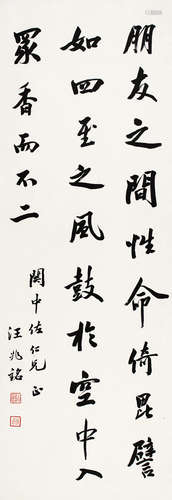 朋友之間性命倚毘譬
如四至之風鼓於空中入
眾香而不二
闕中佐仁兄正
汪兆銘